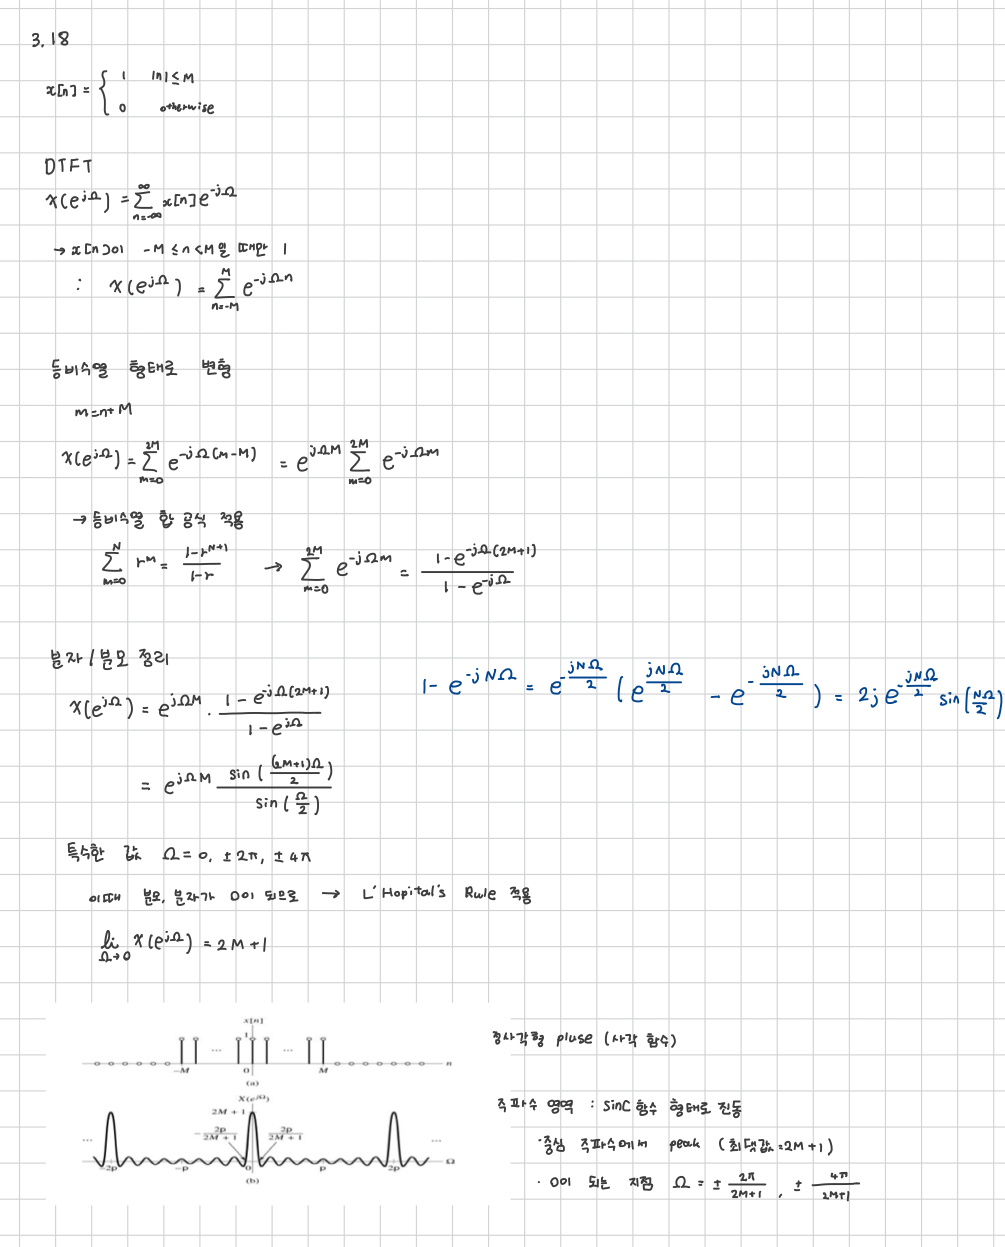 3.18
x[n] = { 1 |n| ≤ M
0 otherwise
DTFT
X(e^{jΩ}) = Σ_{n=-∞}^{∞} x[n] e^{-jΩ}
→ x[n]이 -M ≤ n < M일 때만 1
: X(e^{jΩ}) = Σ_{n=-M}^{M} e^{-jΩn}
등비수열 형태로 변형
m = n+M
X(e^{jΩ}) = Σ_{m=0}^{2M} e^{-jΩ(M-M)} = e^{jΩM} Σ_{m=0}^{2M} e^{-jΩm}
→ 등비수열 합 공식 적용
Σ_{m=0}^{N} r^m = (1-r^{N+1})/(1-r) → Σ_{m=0}^{2M} e^{-jΩm} = (1-e^{-jΩ(2M+1)})/(1-e^{-jΩ})
분자/분모 정리
X(e^{jΩ}) = e^{jΩM} · (1-e^{-jΩ(2M+1)})/(1-e^{jΩ})
1- e^{-jNΩ} = e^{-jNΩ/2} (e^{jNΩ/2} - e^{-jNΩ/2}) = 2j e^{-jNΩ/2} sin(NΩ/2)
= e^{jΩM} sin((2M+1)Ω/2) / sin(Ω/2)
특수한 값 Ω = 0, ±2π, ±4π
이때 분모, 분자가 0이 되므로 → L'Hopital's Rule 적용
lim_{Ω→0} X(e^{jΩ}) = 2M+1
x[n]
1
... ...
-M 0 M n
(a)
X(e^{jΩ})
2M + 1
-2p/(2M + 1) 2p/(2M + 1)
... ...
-2p -p 0 p 2p Ω
(b)
정사각형 pluse (사각 함수)
주파수 영역 : SinC 함수 형태로 진동
·중심 주파수에서 peak (최댓값=2M+1)
· 0이 되는 지점 Ω = ± 2π/(2M+1) , ± 4π/(2M+1)